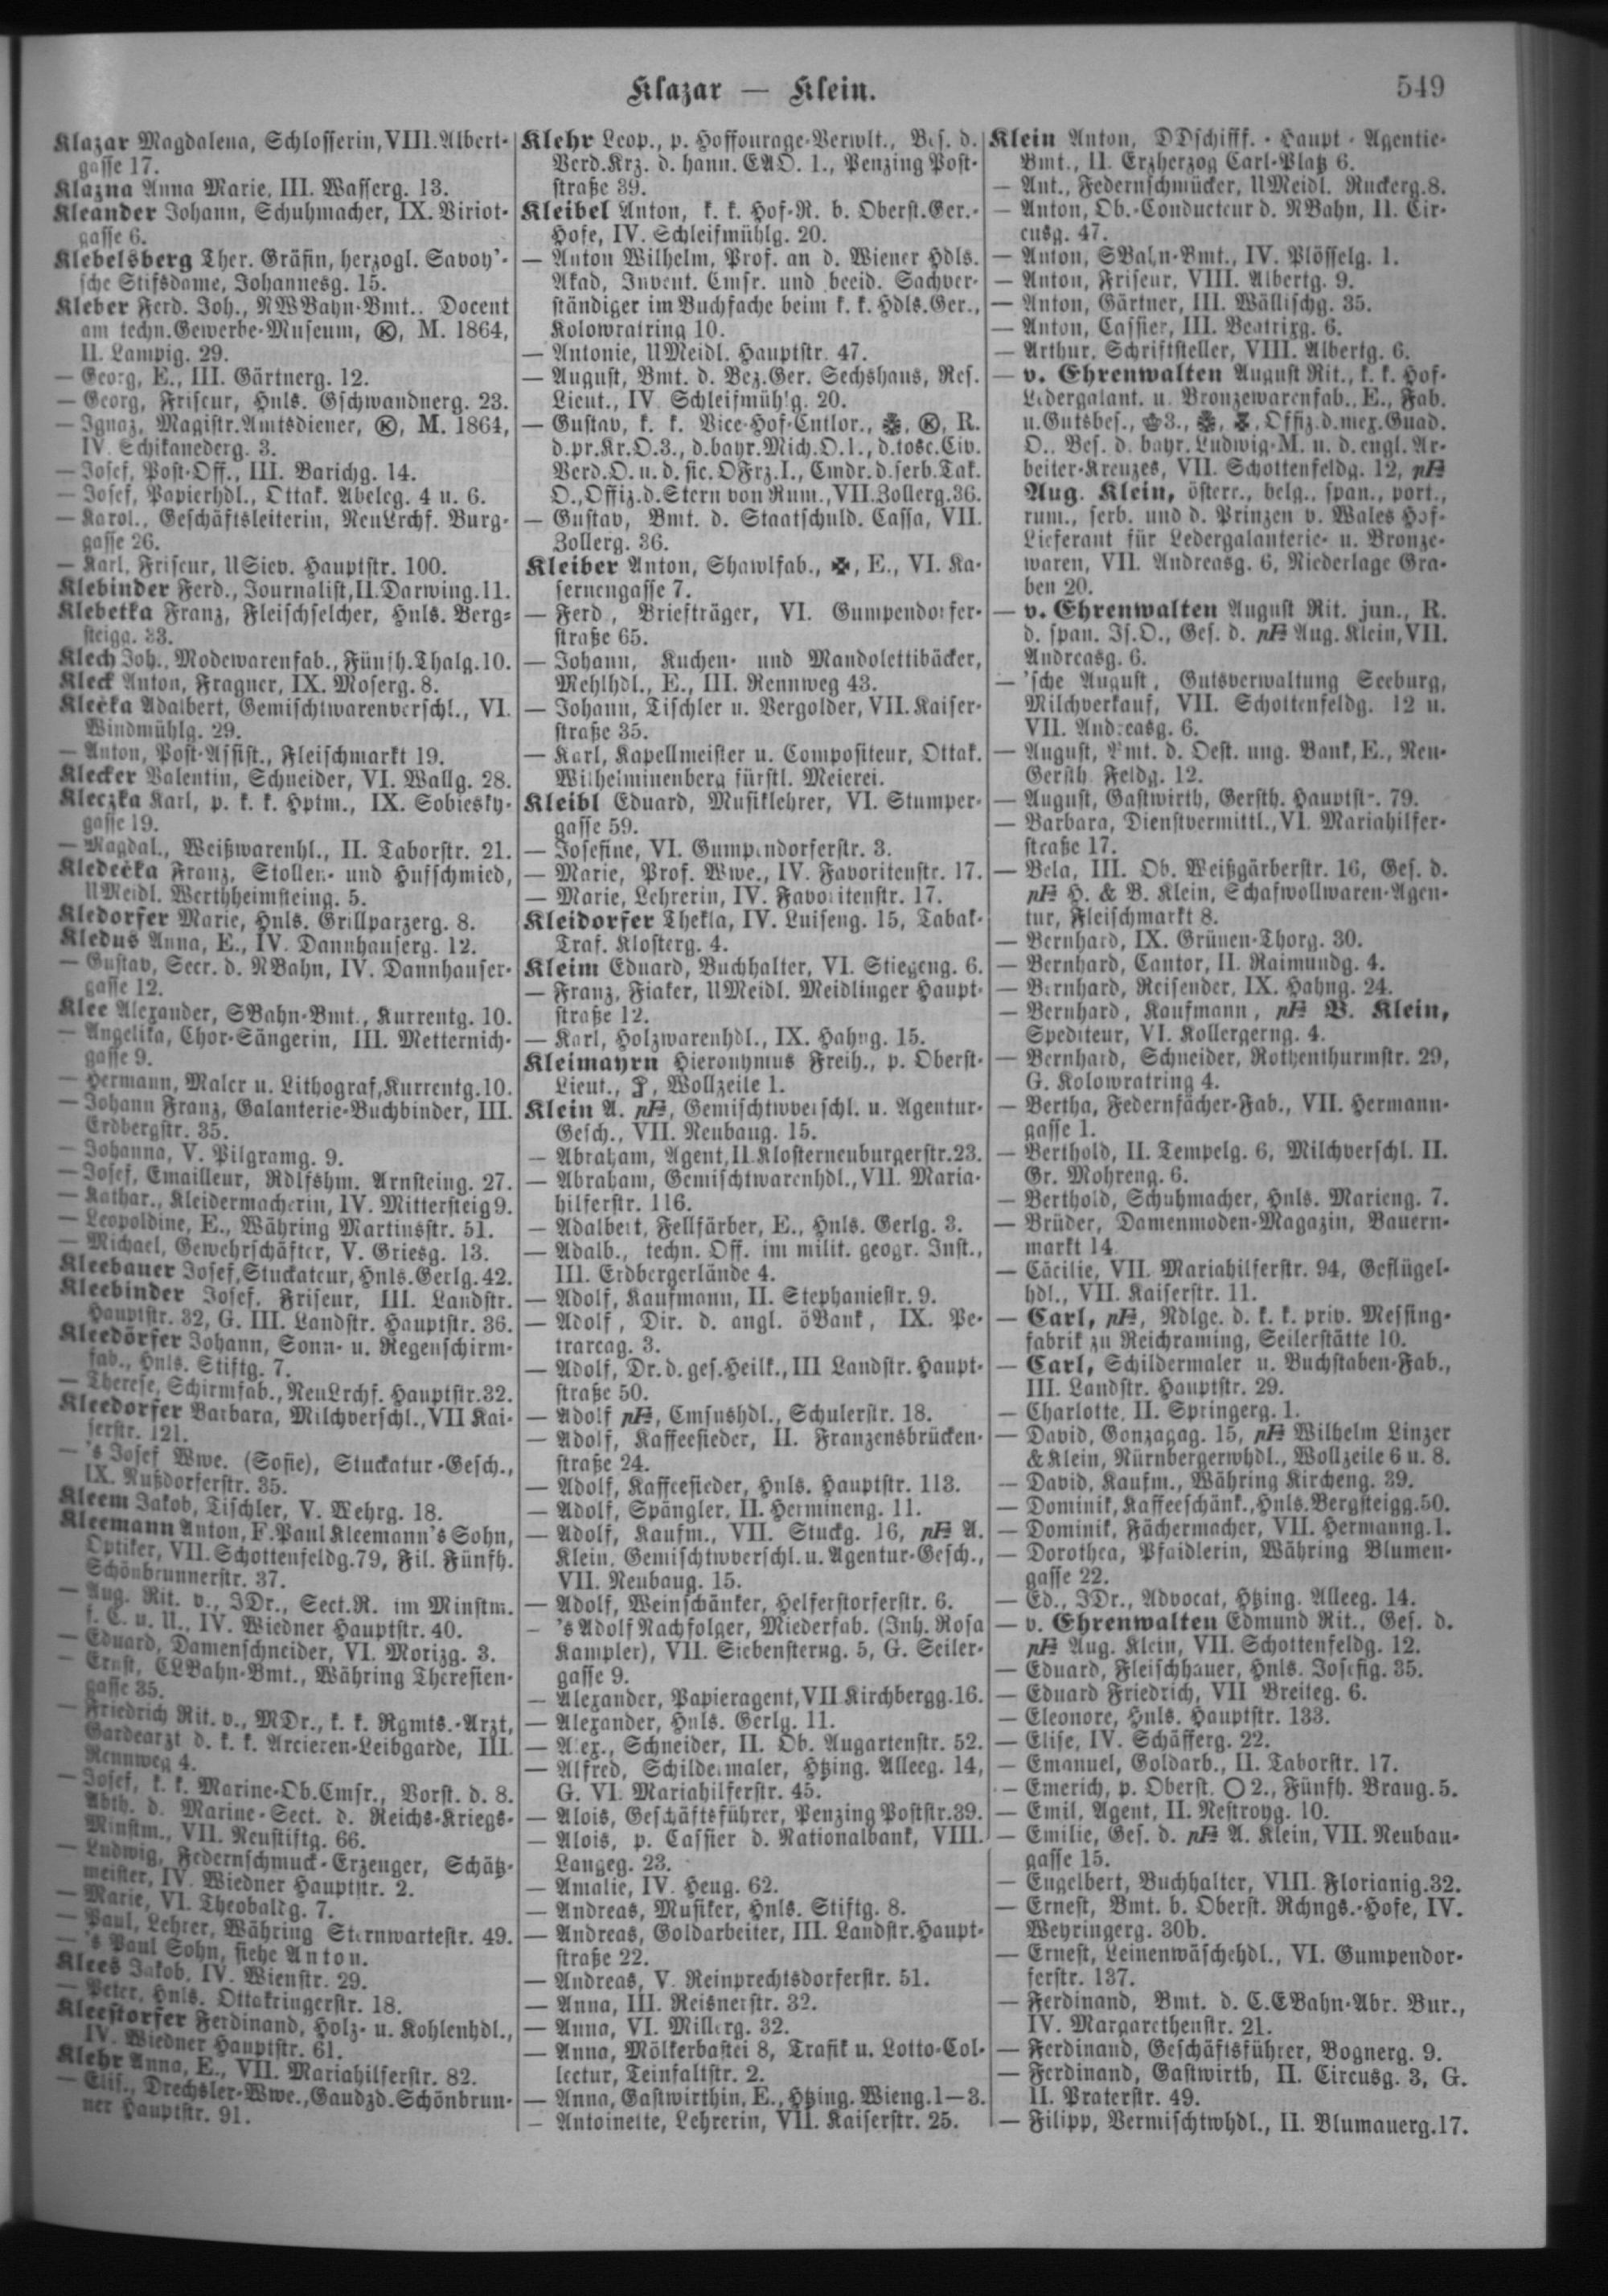 Klazar — Klein.
549
Klazar Magdalena, Schlosserin, VIII. Albert-
gasse 17.
Klazna Anna Marie, III. Wasserg. 13.
Kleander Johann, Schuhmacher, IX. Viriot-
gasse 6.
Klebelsberg Ther. Gräfin, herzogl. Savoy'-
sche Stifsdame, Johannesg. 15.
Kleber Ferd. Joh., NWBahn-Bmt., Docent
am techn. Gewerbe-Museum, Ⓚ, M. 1864,
II. Lampig. 29.
— Georg, E., III. Gärtnerg. 12.
— Georg, Friseur, Hnls. Gschwandnerg. 23.
— Ignaz, Magistr. Amtsdiener, Ⓚ, M. 1864,
IV. Schikanederg. 3.
— Josef, Post-Off., III. Barichg. 14.
— Josef, Papierhdl., Ottak. Abeleg. 4 u. 6.
— Karol., Geschäftsleiterin, NeuLrchf. Burg-
gasse 26.
— Karl, Friseur, USiev. Hauptstr. 100.
Klebinder Ferd., Journalist, II. Darwing. 11.
Klebetka Franz, Fleischselcher, Hnls. Berg-
steigg. 33.
Klech Joh., Modewarenfab., Fünfh. Thalg. 10.
Kleck Anton, Fragner, IX. Moserg. 8.
Klečka Adalbert, Gemischtwarenverschl., VI.
Windmühlg. 29.
— Anton, Post-Assist., Fleischmarkt 19.
Klecker Valentin, Schneider, VI. Wallg. 28.
Kleczka Karl, p. k. k. Hptm., IX. Sobiesky-
gasse 19.
— Magdal., Weißwarenhl., II. Taborstr. 21.
Kledečka Franz, Stollen- und Hufschmied,
UMeidl. Werthheimsteing. 5.
Kledorfer Marie, Hnls. Grillparzerg. 8.
Kledus Anna, E., IV. Dannhauserg. 12.
— Gustav, Secr. d. NBahn, IV. Dannhauser-
gasse 12.
Klee Alexander, SBahn-Bmt., Kurrentg. 10.
— Angelika, Chor-Sängerin, III. Metternich-
gasse 9.
— Hermann, Maler u. Lithograf, Kurrentg. 10.
— Johann Franz, Galanterie-Buchbinder, III.
Erdbergstr. 35.
— Johanna, V. Pilgramg. 9.
— Josef, Emailleur, Rdlfshm. Arnsteing. 27.
— Kathar., Kleidermacherin, IV. Mittersteig 9.
— Leopoldine, E., Währing Martinsstr. 51.
— Michael, Gewehrschäfter, V. Griesg. 13.
Kleebauer Josef, Stuckateur, Hnls. Gerlg. 42.
Kleebinder Josef, Friseur, III. Landstr.
Hauptstr. 32, G. III. Landstr. Hauptstr. 36.
Kleedörfer Johann, Sonn- u. Regenschirm-
fab., Hnls. Stiftg. 7.
— Therese, Schirmfab., NeuLrchf. Hauptstr. 32.
Kleedorfer Barbara, Milchverschl., VII Kai-
serstr. 121.
— 's Josef Wwe. (Sofie), Stuckatur-Gesch.,
IX. Nußdorferstr. 35.
Kleem Jakob, Tischler, V. Wehrg. 18.
Kleemann Anton, F. Paul Kleemann's Sohn,
Optiker, VII. Schottenfeldg. 79, Fil. Fünfh.
Schönbrunnerstr. 37.
— Aug. Rit. v., JDr., Sect.R. im Minstm.
f. C. u. U., IV. Wiedner Hauptstr. 40.
— Eduard, Damenschneider, VI. Morizg. 3.
— Ernst, CLBahn-Bmt., Währing Theresien-
gasse 35.
— Friedrich Rit. v., MDr., k. k. Rgmts.-Arzt,
Gardearzt d. k. k. Arcieren-Leibgarde, III.
Rennweg 4.
— Josef, k. k. Marine-Ob.Cmsr., Vorst. d. 8.
Abth. d. Marine-Sect. d. Reichs-Kriegs-
Minstm., VII. Neustiftg. 66.
— Ludwig, Federnschmuck-Erzeuger, Schätz-
meister, IV. Wiedner Hauptstr. 2.
— Marie, VI. Theobaldg. 7.
— Paul, Lehrer, Währing Sternwartestr. 49.
— 's Paul Sohn, siehe Anton.
Klees Jakob, IV. Wienstr. 29.
— Peter, Hnls. Ottakringerstr. 18.
Kleestorfer Ferdinand, Holz- u. Kohlenhdl.,
IV. Wiedner Hauptstr. 61.
Klehr Anna, E., VII. Mariahilferstr. 82.
— Elis., Drechsler-Wwe., Gaudzd. Schönbrun-
ner Hauptstr. 91.
Klehr Leop., p. Hoffourage-Verwlt., Bes. d.
Verd.Krz. d. hann. EAO. 1., Penzing Post-
straße 39.
Kleibel Anton, k. k. Hof-R. b. Oberst.Ger.-
Hofe, IV. Schleifmühlg. 20.
— Anton Wilhelm, Prof. an d. Wiener Hdls.
Akad, Invent. Cmsr. und beeid. Sachver-
ständiger im Buchfache beim k. k. Hdls.Ger.,
Kolowratring 10.
— Antonie, UMeidl. Hauptstr. 47.
— August, Bmt. d. Bez.Ger. Sechshaus, Res.
Lieut., IV. Schleifmühlg. 20.
— Gustav, k. k. Vice-Hof-Cntlor., Ⓚ, R.
d. pr. Kr.O.3., d. bayr. Mich.O.1., d. tosc. Civ.
Verd.O. u. d. sic. OFrz.I., Cmdr. d. serb. Tak.
O., Offiz. d. Stern von Rum., VII. Zollerg. 36.
— Gustav, Bmt. d. Staatschuld. Cassa, VII.
Zollerg. 36.
Kleiber Anton, Shawlfab., ✠, E., VI. Ka-
sernengasse 7.
— Ferd., Briefträger, VI. Gumpendorfer-
straße 65.
— Johann, Kuchen- und Mandolettibäcker,
Mehlhdl., E., III. Rennweg 43.
— Johann, Tischler u. Vergolder, VII. Kaiser-
straße 35.
— Karl, Kapellmeister u. Compositeur, Ottak.
Wilhelminenberg fürstl. Meierei.
Kleibl Eduard, Musiklehrer, VI. Stumper-
gasse 59.
— Josefine, VI. Gumpendorferstr. 3.
— Marie, Prof. Wwe., IV. Favoritenstr. 17.
— Marie, Lehrerin, IV. Favoritenstr. 17.
Kleidorfer Thekla, IV. Luiseng. 15, Tabak-
Traf. Klosterg. 4.
Kleim Eduard, Buchhalter, VI. Stiegeng. 6.
— Franz, Fiaker, UMeidl. Meidlinger Haupt-
straße 12.
— Karl, Holzwarenhdl., IX. Hahng. 15.
Kleimayrn Hieronymus Freih., p. Oberst-
Lieut., Wollzeile 1.
Klein A. pF, Gemischtwverschl. u. Agentur-
Gesch., VII. Neubaug. 15.
— Abraham, Agent, II Klosterneuburgerstr. 23.
— Abraham, Gemischtwarenhdl., VII. Maria-
hilferstr. 116.
— Adalbert, Fellfärber, E., Hnls. Gerlg. 3.
— Adalb., techn. Off. im milit. geogr. Inst.,
III. Erdbergerlände 4.
— Adolf, Kaufmann, II. Stephaniestr. 9.
— Adolf, Dir. d. angl. öBank, IX. Pe-
trarcag. 3.
— Adolf, Dr. d. ges. Heilk., III Landstr. Haupt-
straße 50.
— Adolf pF, Cmsnshdl., Schulerstr. 18.
— Adolf, Kaffeesieder, II. Franzensbrücken-
straße 24.
— Adolf, Kaffeesieder, Hnls. Hauptstr. 113.
— Adolf, Spängler, II. Hermineng. 11.
— Adolf, Kaufm., VII. Stuckg. 16, pF A.
Klein, Gemischtwverschl. u. Agentur-Gesch.,
VII. Neubaug. 15.
— Adolf, Weinschänker, Helferstorferstr. 6.
— 's Adolf Nachfolger, Miederfab. (Inh. Rosa
Kampler), VII. Siebensterng. 5, G. Seiler-
gasse 9.
— Alexander, Papieragent, VII Kirchbergg. 16.
— Alexander, Hnls. Gerlg. 11.
— Alex., Schneider, II. Ob. Augartenstr. 52.
— Alfred, Schildermaler, Htzing. Alleeg. 14,
G. VI. Mariahilferstr. 45.
— Alois, Geschäftsführer, Penzing Poststr. 39.
— Alois, p. Cassier d. Nationalbank, VIII.
Langeg. 23.
— Amalie, IV. Heug. 62.
— Andreas, Musiker, Hnls. Stiftg. 8.
— Andreas, Goldarbeiter, III. Landstr. Haupt-
straße 22.
— Andreas, V. Reinprechtsdorferstr. 51.
— Anna, III. Reisnerstr. 32.
— Anna, VI. Millerg. 32.
— Anna, Mölkerbastei 8, Trafik u. Lotto-Col-
lectur, Teinfaltstr. 2.
— Anna, Gastwirthin, E., Htzing. Wieng. 1—3.
— Antoinette, Lehrerin, VII. Kaiserstr. 25.
Klein Anton, DDschifff.-Haupt-Agentie-
Bmt., II. Erzherzog Carl-Platz 6.
— Ant., Federnschmücker, UMeidl. Ruckerg. 8.
— Anton, Ob.-Conducteur d. NBahn, II. Cir-
cusg. 47.
— Anton, SBahn-Bmt., IV. Plösselg. 1.
— Anton, Friseur, VIII. Albertg. 9.
— Anton, Gärtner, III. Wällischg. 35.
— Anton, Cassier, III. Beatrixg. 6.
— Arthur, Schriftsteller, VIII. Albertg. 6.
— v. Ehrenwalten August Rit., k. k. Hof-
Ledergalant. u. Bronzewarenfab., E., Fab.
u. Gutsbes., 3., Offiz. d. mex. Guad.
O., Bes. d. bayr. Ludwig-M. u. d. engl. Ar-
beiter-Kreuzes, VII. Schottenfeldg. 12, pF
Aug. Klein, österr., belg., span., port.,
rum., serb. und d. Prinzen v. Wales Hof-
Lieferant für Ledergalanterie- u. Bronze-
waren, VII. Andreasg. 6, Niederlage Gra-
ben 20.
— v. Ehrenwalten August Rit. jun., R.
d. span. Is.O., Ges. d. pF Aug. Klein, VII.
Andreasg. 6.
— 'sche August, Gutsverwaltung Seeburg,
Milchverkauf, VII. Schottenfeldg. 12 u.
VII. Andreasg. 6.
— August, Bmt. d. Oest. ung. Bank, E., Neu-
Gersth. Feldg. 12.
— August, Gastwirth, Gersth. Hauptstr. 79.
— Barbara, Dienstvermittl., VI. Mariahilfer-
straße 17.
— Bela, III. Ob. Weißgärberstr. 16, Ges. d.
pF H. & B. Klein, Schafwollwaren-Agen-
tur, Fleischmarkt 8.
— Bernhard, IX. Grünen-Thorg. 30.
— Bernhard, Cantor, II. Raimundg. 4.
— Bernhard, Reisender, IX. Hahng. 24.
— Bernhard, Kaufmann, pF B. Klein,
Spediteur, VI. Kollergerng. 4.
— Bernhard, Schneider, Rothenthurmstr. 29,
G. Kolowratring 4.
— Bertha, Federnfächer-Fab., VII. Hermann-
gasse 1.
— Berthold, II. Tempelg. 6, Milchverschl. II.
Gr. Mohreng. 6.
— Berthold, Schuhmacher, Hnls. Marieng. 7.
— Brüder, Damenmoden-Magazin, Bauern-
markt 14.
— Cäcilie, VII. Mariahilferstr. 94, Geflügel-
hdl., VII. Kaiserstr. 11.
— Carl, pF, Ndlge. d. k. k. priv. Messing-
fabrik zu Reichraming, Seilerstätte 10.
— Carl, Schildermaler u. Buchstaben-Fab.,
III. Landstr. Hauptstr. 29.
— Charlotte, II. Springerg. 1.
— David, Gonzagag. 15, pF Wilhelm Linzer
& Klein, Nürnbergerwhdl., Wollzeile 6 u. 8.
— David, Kaufm., Währing Kircheng. 39.
— Dominik, Kaffeeschänk., Hnls. Bergsteigg. 50.
— Dominik, Fächermacher, VII. Hermanng. 1.
— Dorothea, Pfaidlerin, Währing Blumen-
gasse 22.
— Ed., JDr., Advocat, Htzing. Alleeg. 14.
— v. Ehrenwalten Edmund Rit., Ges. d.
pF Aug. Klein, VII. Schottenfeldg. 12.
— Eduard, Fleischhauer, Hnls. Josefig. 35.
— Eduard Friedrich, VII Breiteg. 6.
— Eleonore, Hnls. Hauptstr. 133.
— Elise, IV. Schäfferg. 22.
— Emanuel, Goldarb., II. Taborstr. 17.
— Emerich, p. Oberst. O 2., Fünfh. Braug. 5.
— Emil, Agent, II. Nestroyg. 10.
— Emilie, Ges. d. pF A. Klein, VII. Neubau-
gasse 15.
— Engelbert, Buchhalter, VIII. Florianig. 32.
— Ernest, Bmt. b. Oberst. Rchngs.-Hofe, IV.
Weyringerg. 30b.
— Ernest, Leinenwäschehdl., VI. Gumpendor-
ferstr. 137.
— Ferdinand, Bmt. d. C.EBahn-Abr. Bur.,
IV. Margarethenstr. 21.
— Ferdinand, Geschäftsführer, Bognerg. 9.
— Ferdinand, Gastwirth, II. Circusg. 3, G.
II. Praterstr. 49.
— Filipp, Vermischtwhdl., II. Blumauerg. 17.